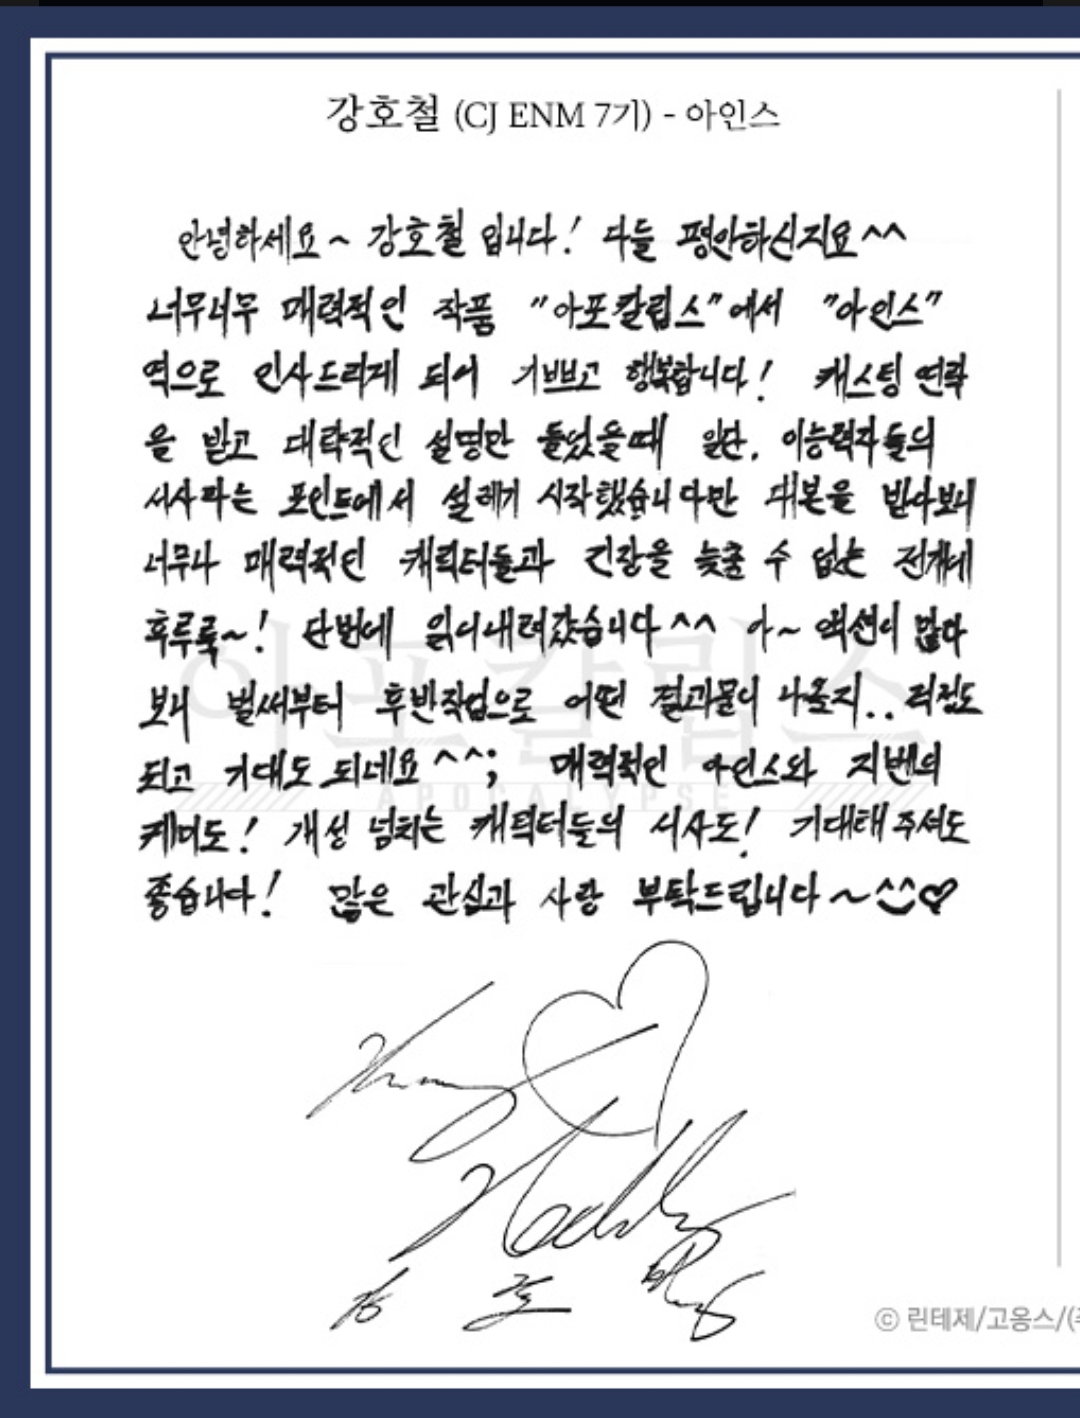 강호철 (CJ ENM 7기) - 아인스
안녕하세요~ 강호철 입니다! 다들 평안하신지요^^
너무너무 매력적인 작품 "아포칼립스"에서 "아인스"
역으로 인사드리게 되어 기쁘고 행복합니다! 캐스팅 연락
을 받고 대략적인 설명만 들었을때 일단, 이능력자들의
서사라는 포인트에서 설레기 시작했습니다만 대본을 받아보니
너무나 매력적인 캐릭터들과 긴장을 늦출 수 없는 전개에
후루룩~! 단번에 읽어내려갔습니다^^ 아~ 액션이 많다
보니 벌써부터 후반작업으로 어떤 결과물이 나올지.. 걱정도
되고 기대도 되네요^^; 매력적인 아인스와 지벤의
케미도! 개성 넘치는 캐릭터들의 서사도! 기대해 주셔도
좋습니다! 많은 관심과 사랑 부탁드립니다~^^♡
아포칼립스
APOCALYPSE
강 호 철
© 린테제/고옹스/(주